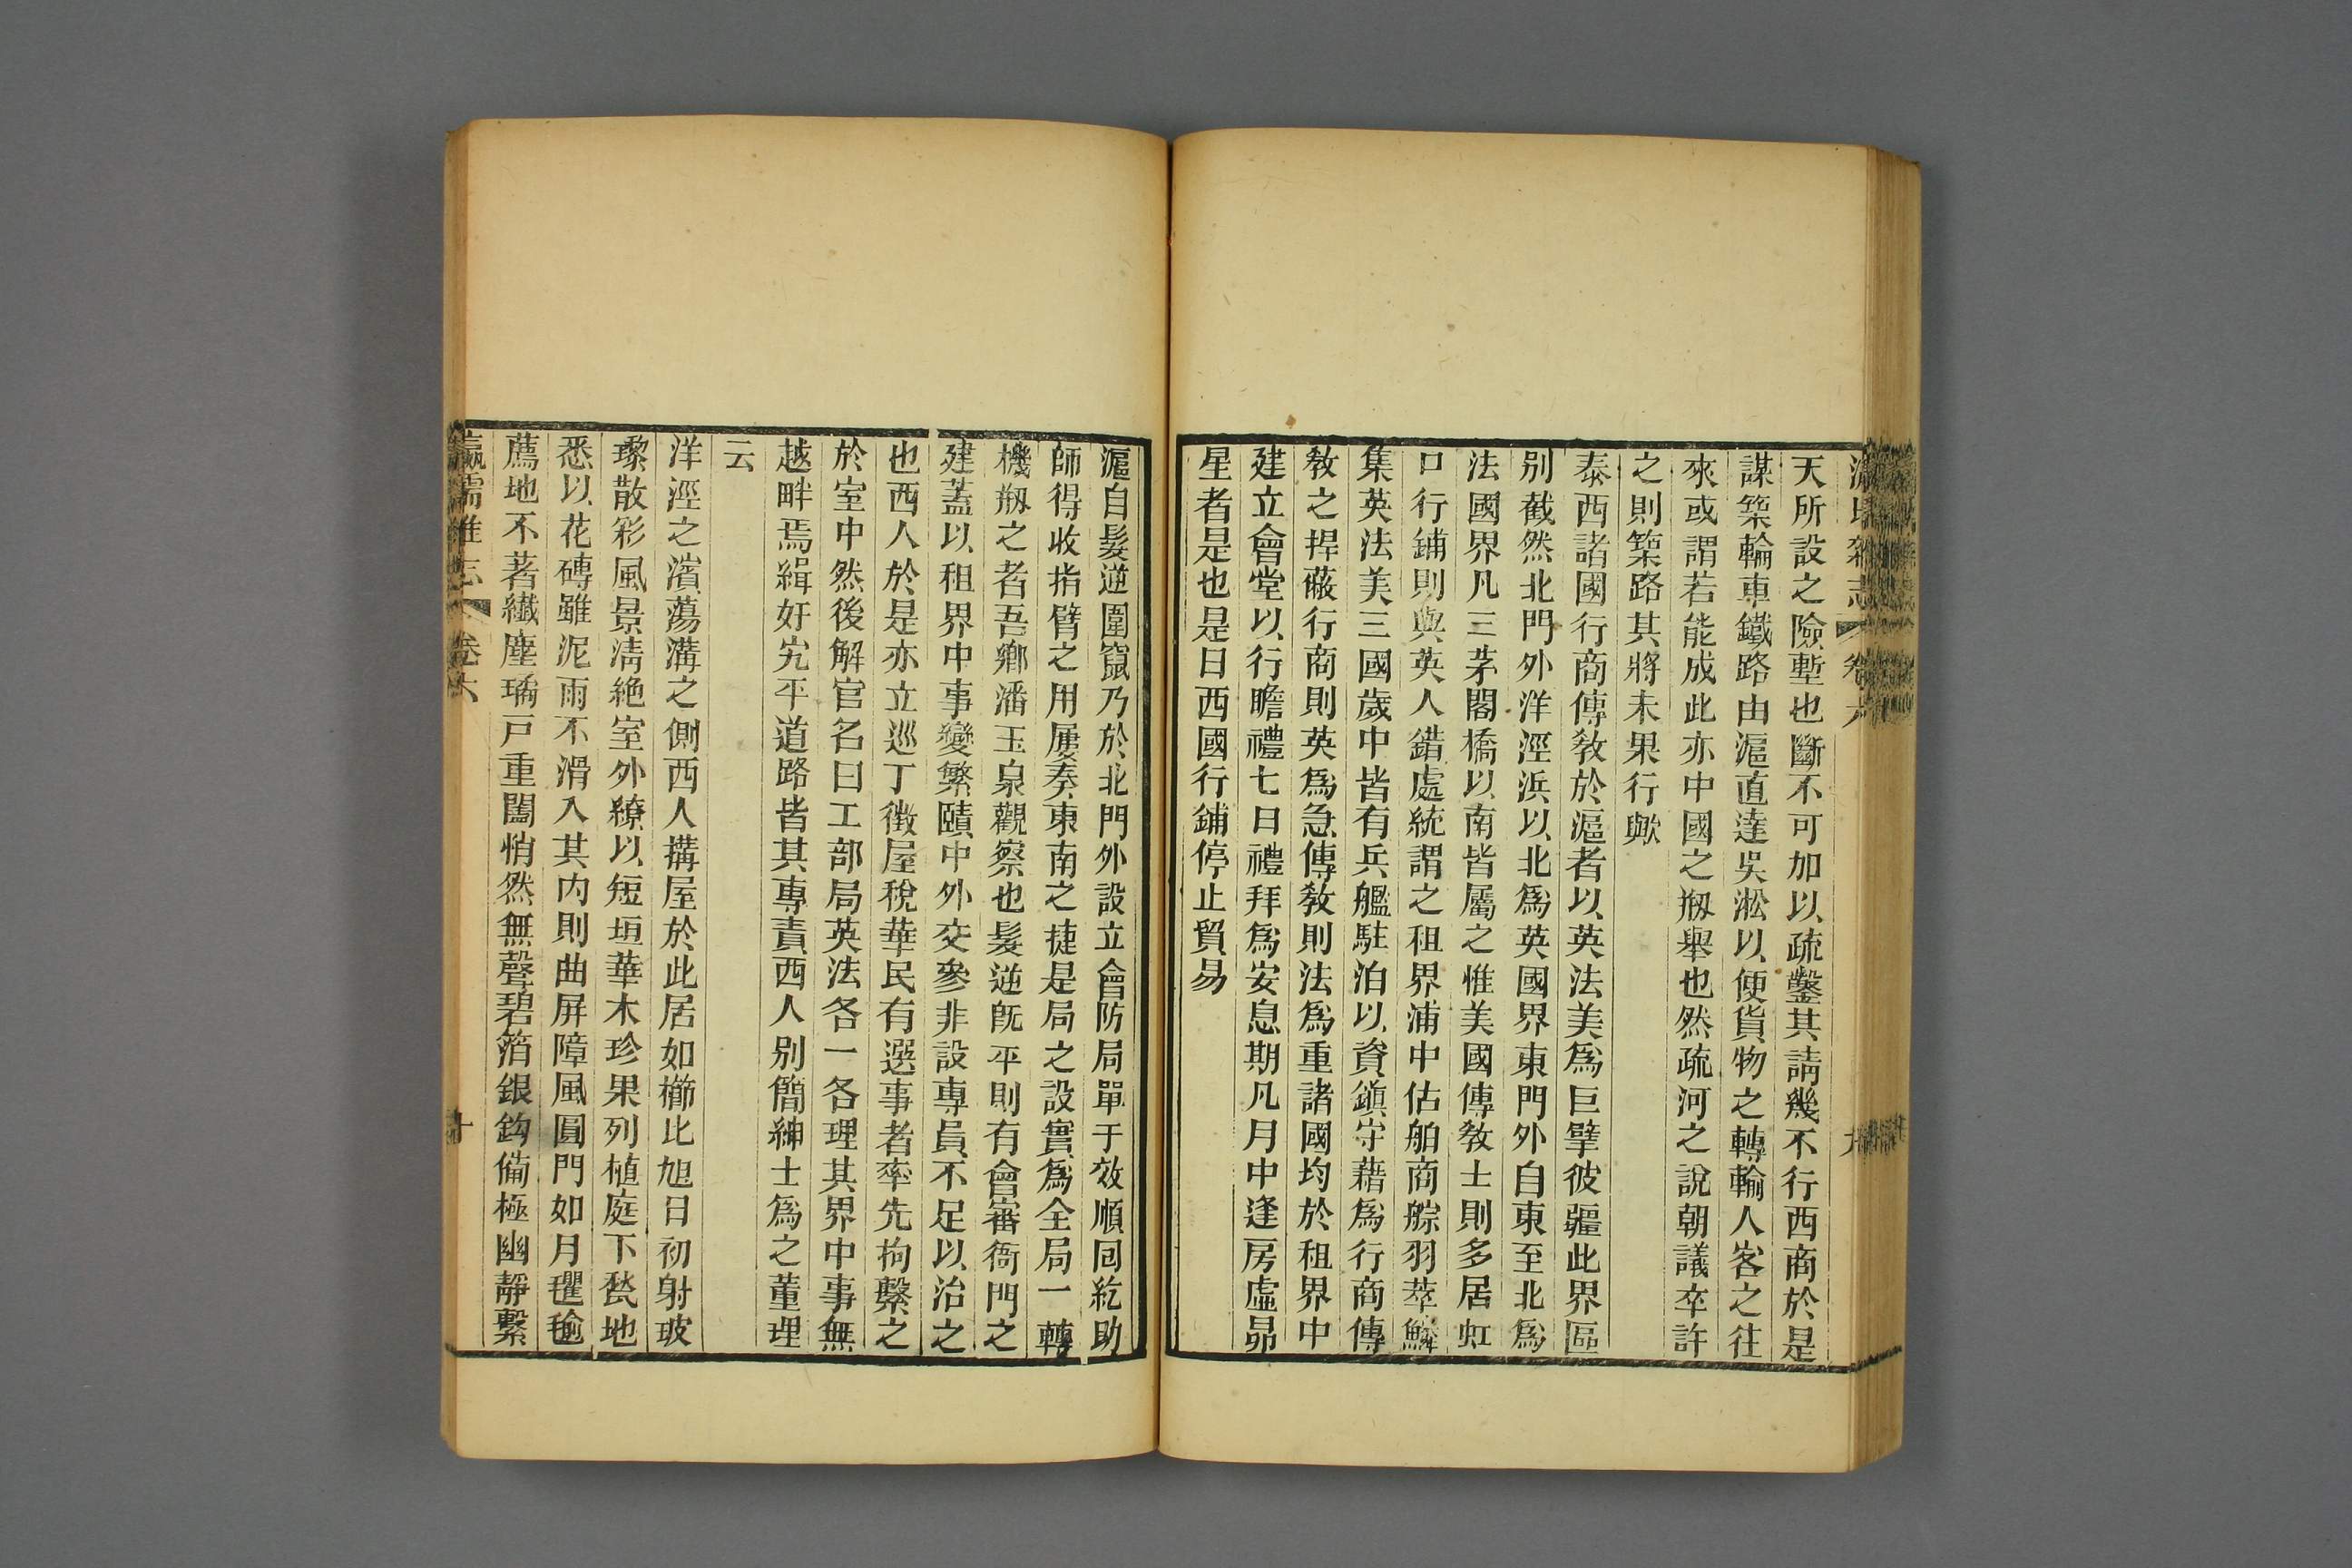 天所設之險塹也斷不可加以疏鑿其請幾不行西商於是
謀築輪車鐵路由滬直達吳淞以便貨物之轉輸人客之往
來或謂若能成此亦中國之剏舉也然疏河之說朝議卒許
之則築路其將未果行歟
泰西諸國行商傳敎於滬者以英法美爲巨擘彼疆此界區
別截然北門外洋涇浜以北爲英國界東門外自東至北爲
法國界凡三茅閣橋以南皆屬之惟美國傳敎士則多居虹
口行鋪則與英人錯處統謂之租界浦中估舶商艅羽萃鱗
集英法美三國歲中皆有兵艦駐泊以資鎭守藉爲行商傳
敎之捍蔽行商則英爲急傳敎則法爲重諸國均於租界中
建立會堂以行瞻禮七日禮拜爲安息期凡月中逢房虛昴
星者是也是日西國行鋪停止貿易
滬自髮逆圍竄乃於北門外設立會防局單于效順回紇助
師得收指臂之用屢奏東南之捷是局之設實爲全局一轉
機剏之者吾鄉潘玉泉觀察也髮逆旣平則有會審衙門之
建蓋以租界中事變繁賾中外交參非設專員不足以治之
也西人於是亦立巡丁徵屋稅華民有選事者率先拘繫之
於室中然後解官名曰工部局英法各一各理其界中事無
越畔焉緝奸宄平道路皆其專責西人別簡紳士爲之董理
云
洋涇之濱蕩溝之側西人搆屋於此居如櫛比旭日初射玻
瓈散彩風景淸絶室外繚以短垣華木珍果列植庭下甃地
悉以花磚雖泥雨不滑入其内則曲屏障風圓門如月氍毹
薦地不著纖塵璚戸重闔悄然無聲碧箔銀鈎備極幽靜繫
瀛壖雜志 卷六 十